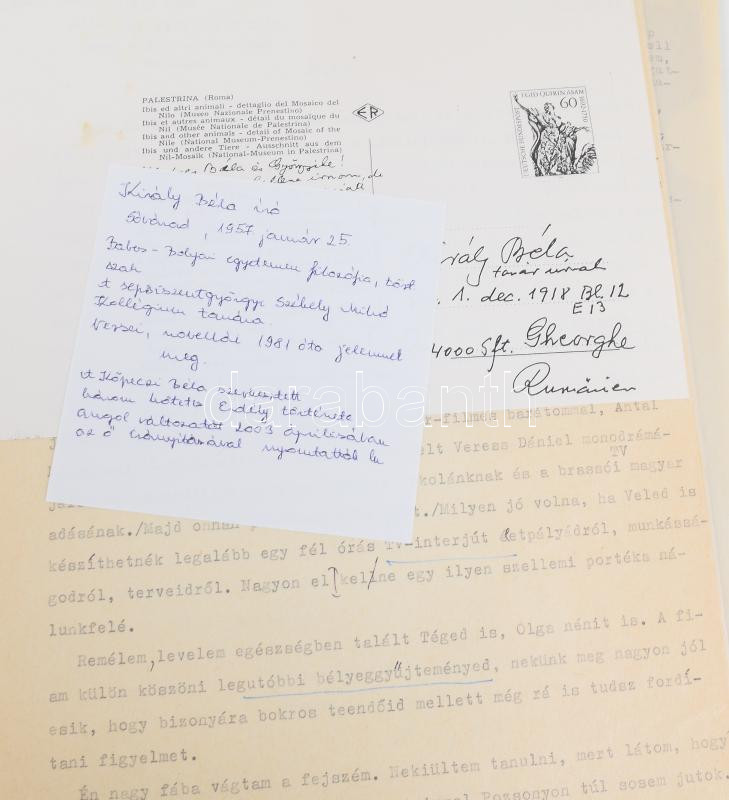 PALESTRINA (Roma)
Ibis ed altri animali - dettaglio del Mosaico del
Nilo (Museo Nazionale Prenestino)
Ibis et autres animaux - détail du mosaïque du
Nil (Musée Nationale de Palestrina)
Ibis and other animals - detail of Mosaic of the
Nile (National Museum-Prenestino)
Ibis und andere Tiere - Ausschnitt aus dem
Nil-Mosaik (National-Museum in Palestrina)
ER
EGID QUIRIN ASAM
1692-1750
60
DEUTSCHE BUNDESPOST
Béla és Györgyike!
Király Béla
tanár úrnak
1. dec. 1918 Bl. 12
E 13
4000 Sft. Gheorghe
Rumänien
Király Béla író
Sóvárad, 1957. január 25.
Babes-Bolyai egyetemen filozófia, tört
szak
A sepsiszentgyörgyi Székely Mikó
Kollégium tanára.
Versei, novellái 1981 óta jelennek
meg.
A Köpeczi Béla szerkesztett
három kötetes Erdély története
angol változatát 2003 áprilisában
az ő irányításával nyomtatták le
darabanth
r-filmes barátommal, Antal
elt Veress Dániel monodrámá-
TV
kolánknak és a brassói magyar
t./Milyen jó volna, ha Veled is
adásának./Majd onnan
készíthetnék legalább egy fél órás TV-interjút életpályádról, munkássá-
godról, terveidről. Nagyon el kelne egy ilyen szellemi portéka ná-
lunkfelé.
Remélem, levelem egészségben talált Téged is, Olga nénit is. A fi-
am külön köszöni legutóbbi bélyeggyűjteményed, nekünk meg nagyon jól
esik, hogy bizonyára bokros teendőid mellett még rá is tudsz fordí-
tani figyelmet.
Én nagy fába vágtam a fejszém. Nekiültem tanulni, mert látom, hogy
Pozsonyon túl sosem jutok.